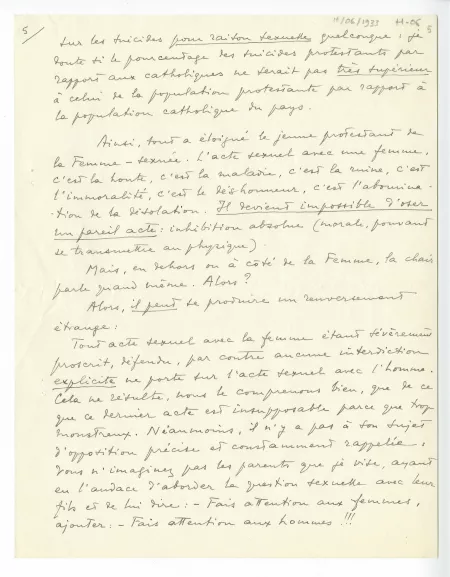 5/
11/06/1933 H-06
5
sur les suicides pour raison sexuelles quelconque : je
doute si le pourcentage des suicides protestants par
rapport aux catholiques ne serait pas très supérieur
à celui de la population protestante par rapport à
la population catholique du pays.
Ainsi, tout a éloigné le jeune protestant de
la Femme-sexuée. L'acte sexuel avec une femme,
c'est la honte, c'est la maladie, c'est la ruine, c'est
l'immoralité, c'est le déshonneur, c'est l'abomina-
-tion de la désolation. Il devient impossible d'oser
un pareil acte : inhibition absolue (morale, pouvant
se transmettre au physique).
Mais, en dehors ou à côté de la Femme, la chair
parle quand même. Alors ?
Alors, il peut se produire un renversement
étrange :
Tout acte sexuel avec la femme étant sévèrement
proscrit, défendu, par contre aucune interdiction
explicite ne porte sur l'acte sexuel avec l'homme.
Cela ne résulte, nous le comprenons bien, que de ce
que ce dernier acte est insupposable parce que trop
monstreux. Néanmoins, il n'y a pas à son sujet
d'opposition précise et constamment rappelée ;
vous n'imaginez pas les parents que je vise, ayant
eu l'audace d'aborder la question sexuelle avec leur
fils et de lui dire : - Fais attention aux femmes,
ajouter : - Fais attention aux hommes !!!